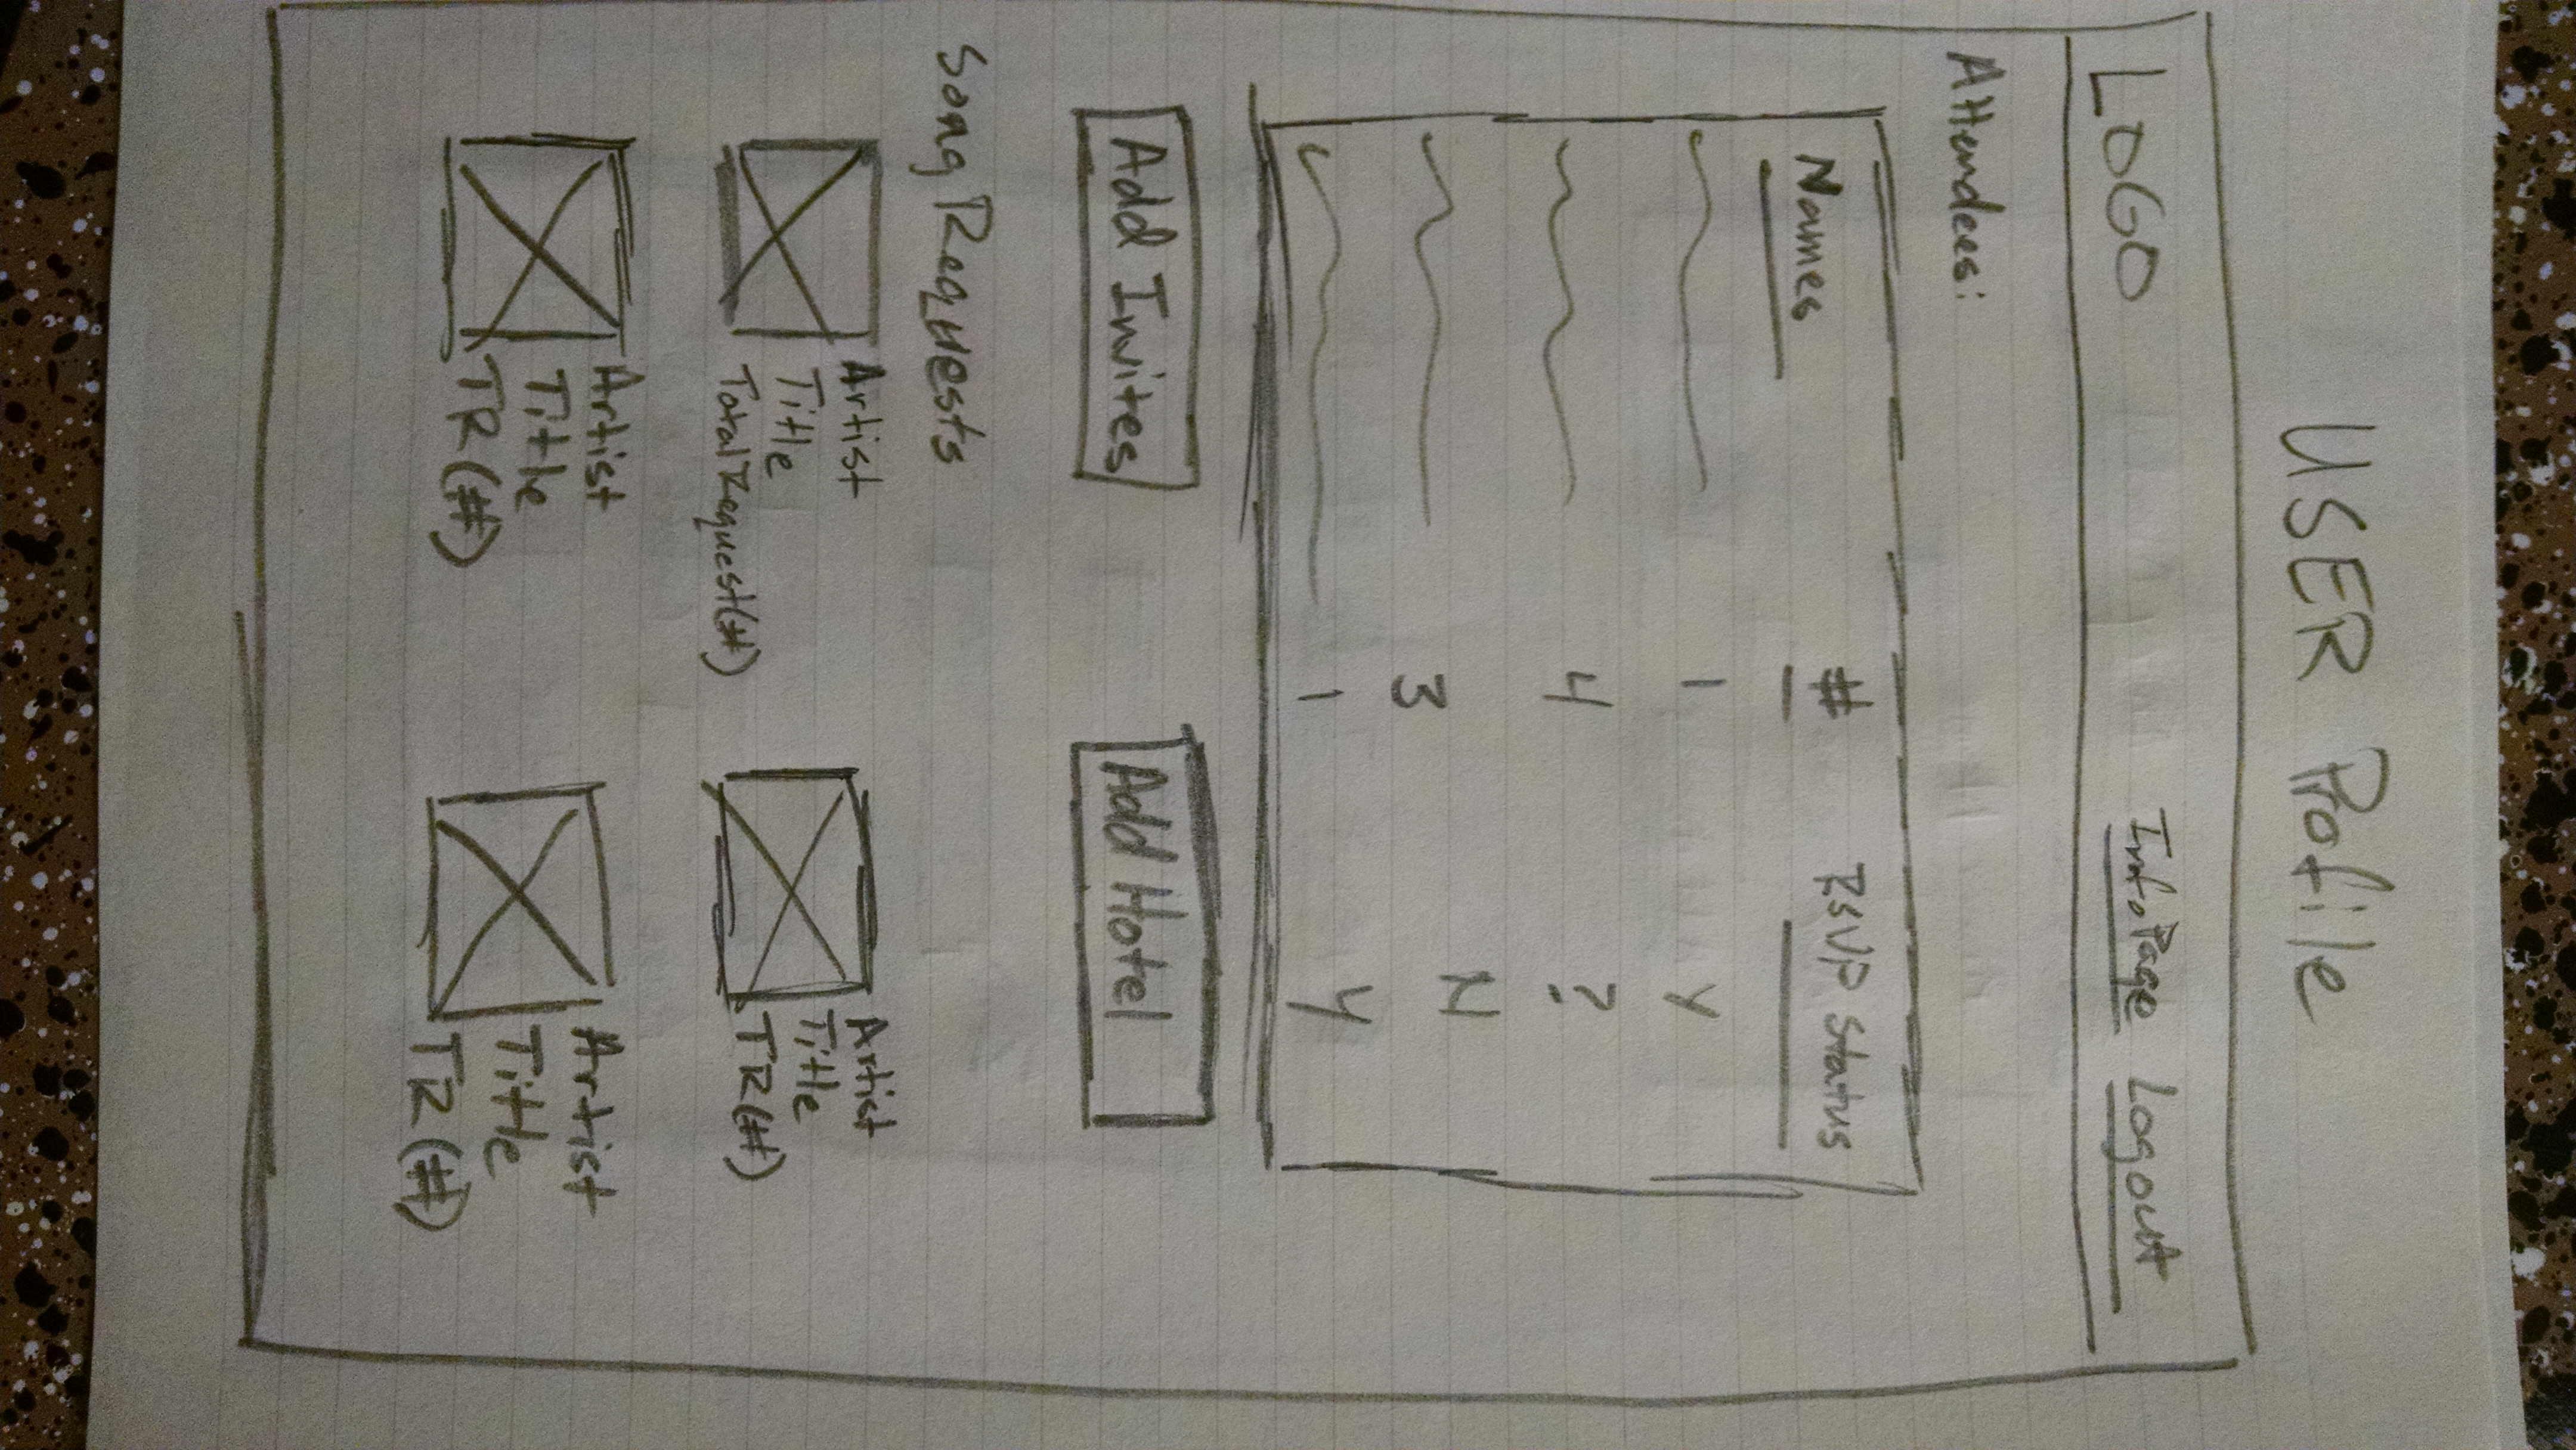 USER Profile
LOGO Info Page Logout
Attendees:
Names # RSVP Status
1 Y
4 ?
3 N
1 Y
Add Invites Add Hotel
Song Requests
Artist
Title
Total Request(#)
Artist
Title
TR(#)
Artist
Title
TR(#)
Artist
Title
TR(#)